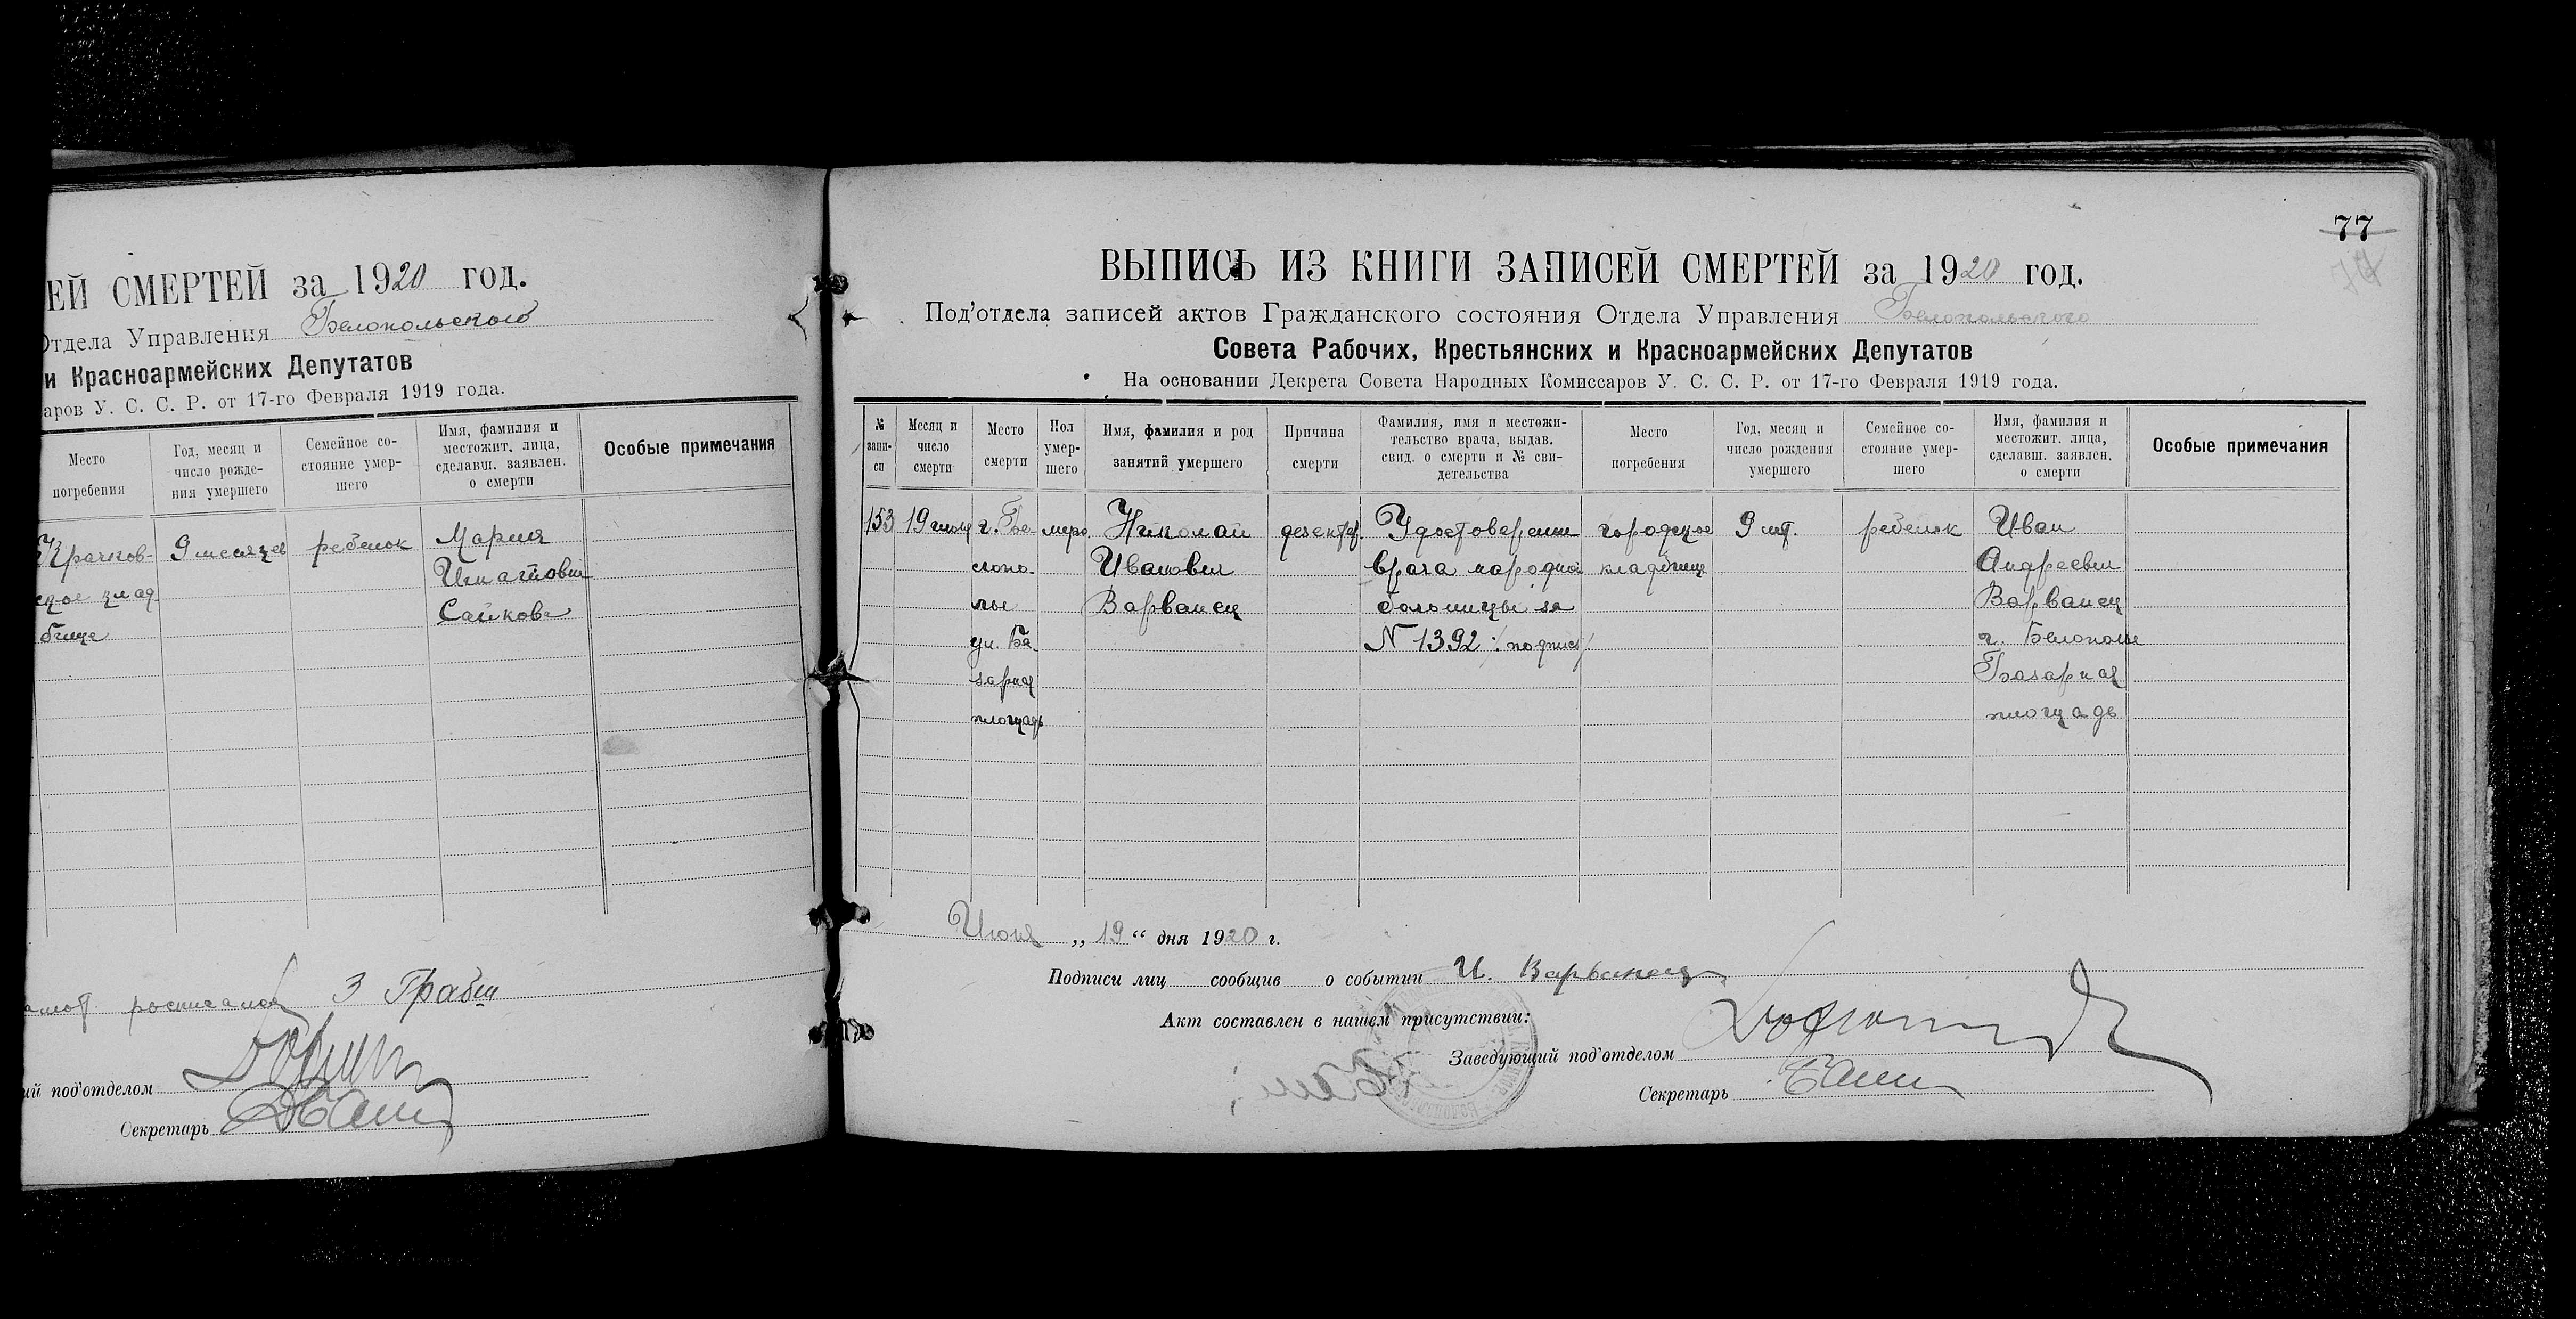 ЕЙ СМЕРТЕЙ за 1920 год.
Отдела Управления Белопольского
и Красноармейских Депутатов
аров У. С. С. Р. от 17-го Февраля 1919 года.
Место погребения
Год, месяц и число рожде-ния умершего
Семейное со-стояние умер-шего
Имя, фамилия и местожит. лица, сделавш. заявлен. о смерти
Особые примечания
Крачков- 9 месяцев ребенок Мария
ское клад Игнатовна
бище Сайкова
росписался З Граби
ий под'отделом
Секретарь
77
ВЫПИСЬ ИЗ КНИГИ ЗАПИСЕЙ СМЕРТЕЙ за 1920 год.
Под'отдела записей актов Гражданского состояния Отдела Управления Белопольского
Совета Рабочих, Крестьянских и Красноармейских Депутатов
На основании Декрета Совета Народных Комиссаров У. С. С. Р. от 17-го Февраля 1919 года.
№ запи-си
Месяц и число смерти
Место смерти
Пол умер-шего
Имя, фамилия и род занятий умершего
Причина смерти
Фамилия, имя и местожи-тельство врача, выдав. свид. о смерти и № сви-детельства
Место погребения
Год, месяц и число рождения умершего
Семейное со-стояние умер-шего
Имя, фамилия и местожит. лица, сделавш. заявлен. о смерти
Особые примечания
153 19 июня г. Бе- Николай дезентер. Удостоверение городское 9 ребенок Иван
лопо- Иванович врача народной кладбище Андреевич
лье Варванец больницы за Варванец
ул. Ба- N 1392 /: подпись/ г. Белополье
зарная Базарная
площадь площадь
Июня „ 19 “ дня 1920 г.
Подписи лиц сообщив о событии И. Варванец
Акт составлен в нашем присутствии:
Заведующий под'отделом
Секретарь